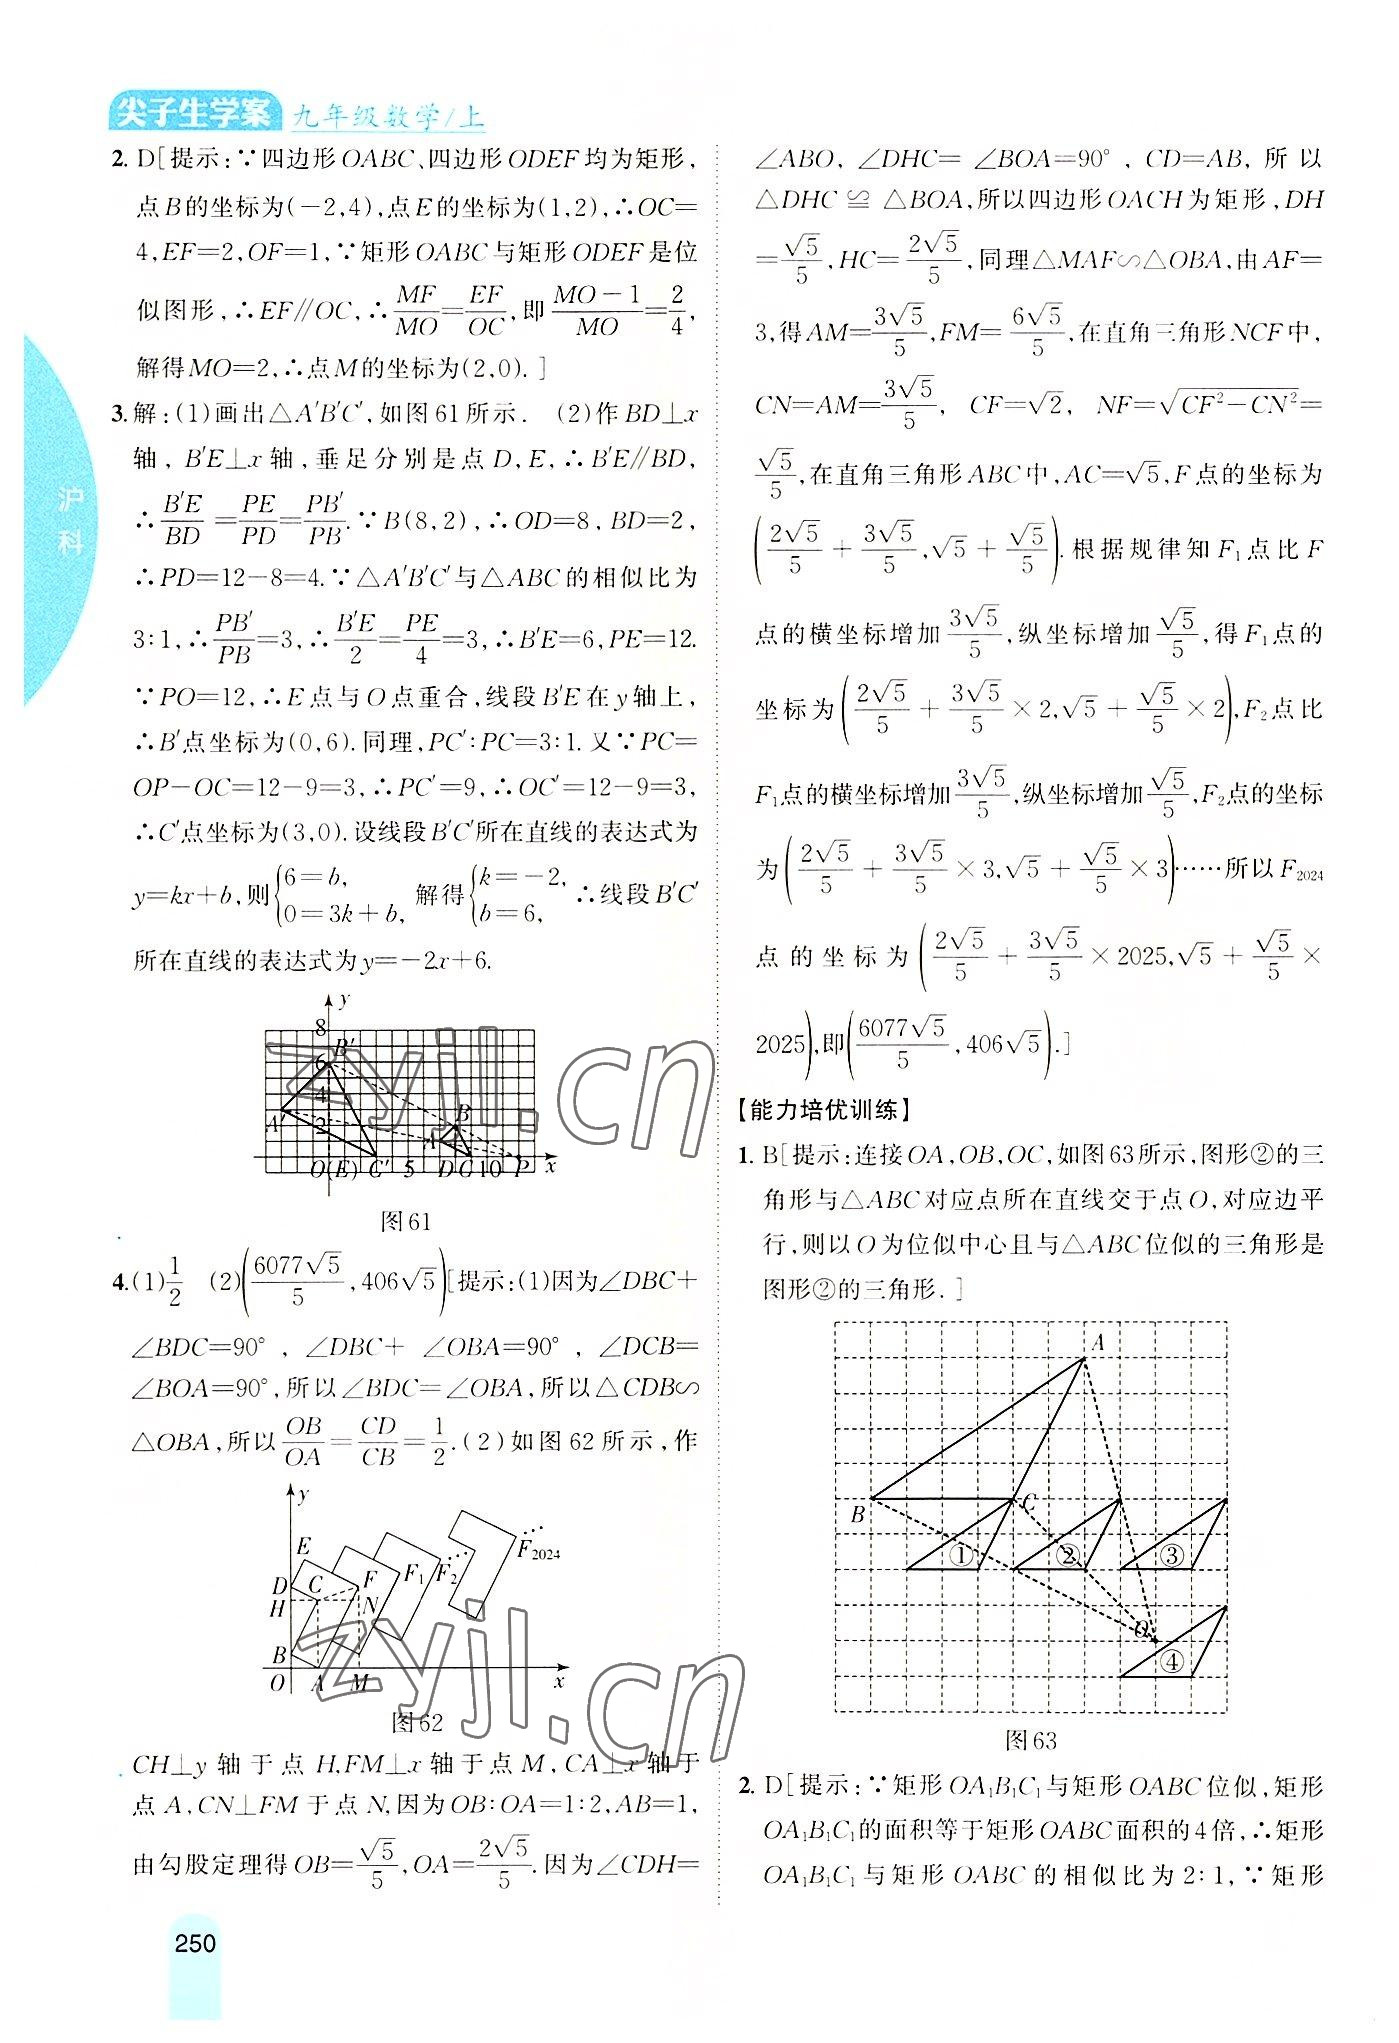 尖子生学案 九年级数学/上
2. D[提示:∵四边形OABC、四边形ODEF均为矩形,
点B的坐标为(-2,4),点E的坐标为(1,2),∴OC=
4,EF=2,OF=1,∵矩形OABC与矩形ODEF是位
似图形,∴EF∥OC,∴MF/MO=EF/OC,即(MO-1)/MO=2/4,
解得MO=2,∴点M的坐标为(2,0).]
3. 解:(1)画出△A′B′C′,如图61所示. (2)作BD⊥x
轴, B′E⊥x轴,垂足分别是点D,E,∴B′E∥BD,
∴B′E/BD=PE/PD=PB′/PB.∵B(8,2),∴OD=8,BD=2,
∴PD=12-8=4.∵△A′B′C′与△ABC的相似比为
3∶1,∴PB′/PB=3,∴B′E/2=PE/4=3,∴B′E=6,PE=12.
∵PO=12,∴E点与O点重合,线段B′E在y轴上,
∴B′点坐标为(0,6).同理,PC′∶PC=3∶1.又∵PC=
OP-OC=12-9=3,∴PC′=9,∴OC′=12-9=3,
∴C′点坐标为(3,0).设线段B′C′所在直线的表达式为
y=kx+b,则{6=b, 0=3k+b, 解得{k=-2, b=6, ∴线段B′C′
所在直线的表达式为y=-2x+6.
y
8
B′
6
4
A′ 2 B
A
O(E) C′ 5 D C 10 P x
图61
4. (1)1/2 (2)(6077√5/5,406√5)[提示:(1)因为∠DBC+
∠BDC=90°, ∠DBC+ ∠OBA=90°, ∠DCB=
∠BOA=90°,所以∠BDC=∠OBA,所以△CDB∽
△OBA,所以OB/OA=CD/CB=1/2.(2)如图62所示,作
y
E F₂₀₂₄
D C F F₁ F₂
H N
B
O A M x
图62
CH⊥y轴于点H,FM⊥x轴于点M,CA⊥x轴于
点A,CN⊥FM于点N,因为OB∶OA=1∶2,AB=1,
由勾股定理得OB=√5/5,OA=2√5/5.因为∠CDH=
∠ABO, ∠DHC= ∠BOA=90°, CD=AB, 所以
△DHC≌△BOA,所以四边形OACH为矩形,DH
=√5/5,HC=2√5/5,同理△MAF∽△OBA,由AF=
3,得AM=3√5/5,FM=6√5/5,在直角三角形NCF中,
CN=AM=3√5/5, CF=√2, NF=√(CF²-CN²)=
√5/5,在直角三角形ABC中,AC=√5,F点的坐标为
(2√5/5+3√5/5,√5+√5/5).根据规律知F₁点比F
点的横坐标增加3√5/5,纵坐标增加√5/5,得F₁点的
坐标为(2√5/5+3√5/5×2,√5+√5/5×2),F₂点比
F₁点的横坐标增加3√5/5,纵坐标增加√5/5,F₂点的坐标
为(2√5/5+3√5/5×3,√5+√5/5×3)……所以F₂₀₂₄
点的坐标为(2√5/5+3√5/5×2025,√5+√5/5×
2025),即(6077√5/5,406√5).]
【能力培优训练】
1. B[提示:连接OA,OB,OC,如图63所示,图形②的三
角形与△ABC对应点所在直线交于点O,对应边平
行,则以O为位似中心且与△ABC位似的三角形是
图形②的三角形.]
A
B C
① ② ③
O
④
图63
2. D[提示:∵矩形OA₁B₁C₁与矩形OABC位似,矩形
OA₁B₁C₁的面积等于矩形OABC面积的4倍,∴矩形
OA₁B₁C₁与矩形OABC的相似比为2∶1,∵矩形
沪科
250
zyjl.cn
zyjl.cn